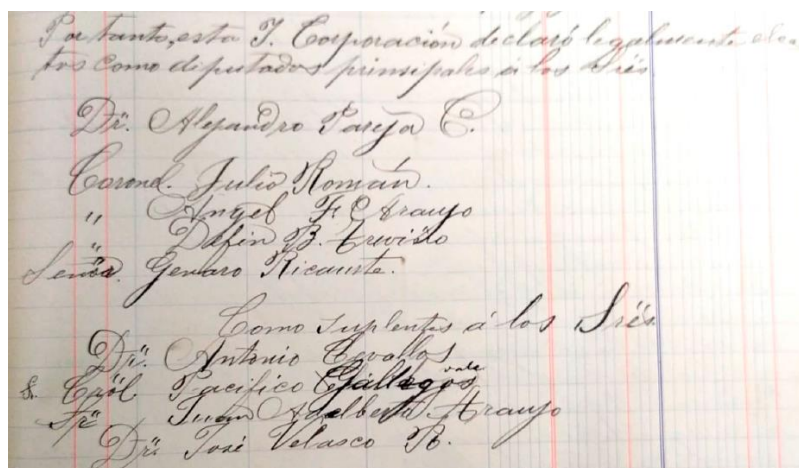 Por tanto, esta I. Corporación declaró legalmente elec-
tos como diputados prinsipales á los Srës
Dr. Alejandro Pareja C.
Coronel. Julio Román.
" Angel F. C Araujo
" Delfin B. Treviño
Señor. Genaro Ricaurte.
Como suplentes á los Srës
Dr. Antonio Cevallos
Sr. Cröl Pacífico Gallegos vale
Sr Juan Adelberto Araujo
Dr. José Velasco R.